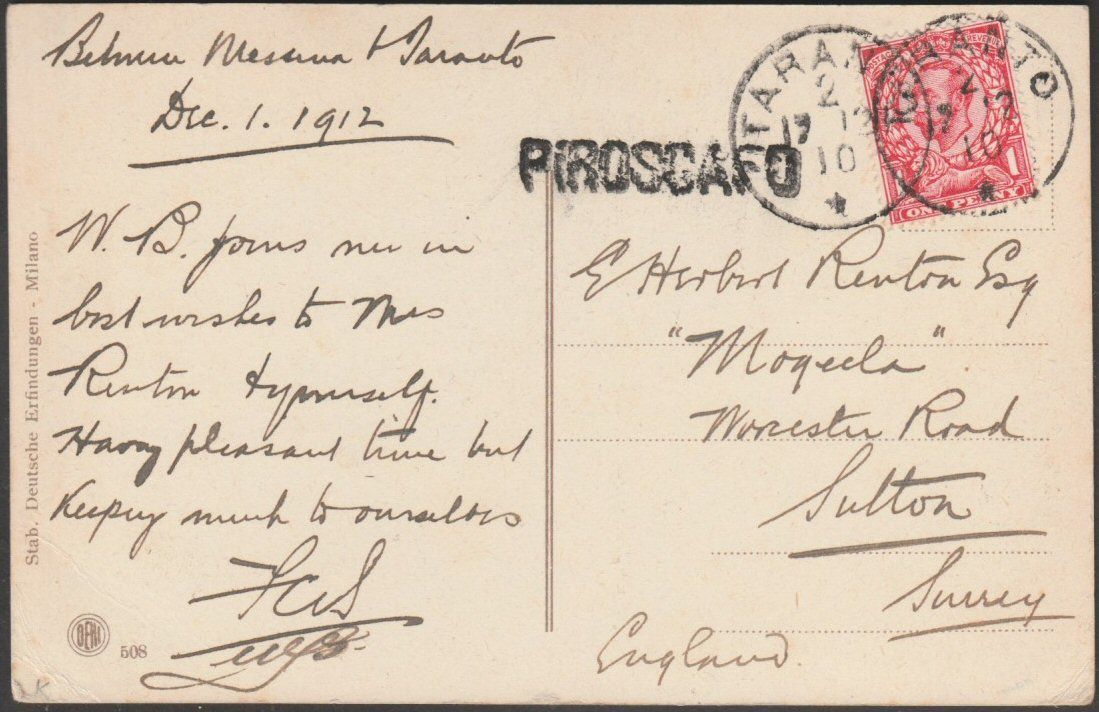 Between Messina & Taranto
Dec. 1. 1912
W. B. joins me in
best wishes to Mrs
Renton & yourself.
Having pleasant time but
keeping much to ourselves
PIROSCAFO
TARANTO
2
17 12
10
TARANTO
2
17 12
10
POSTAGE REVENUE
ONE PENNY
1
E Herbert Renton Esq
"Moqeela"
Worcester Road
Sutton
Surrey
England.
Stab. Deutsche Erfindungen - Milano
DERI
508